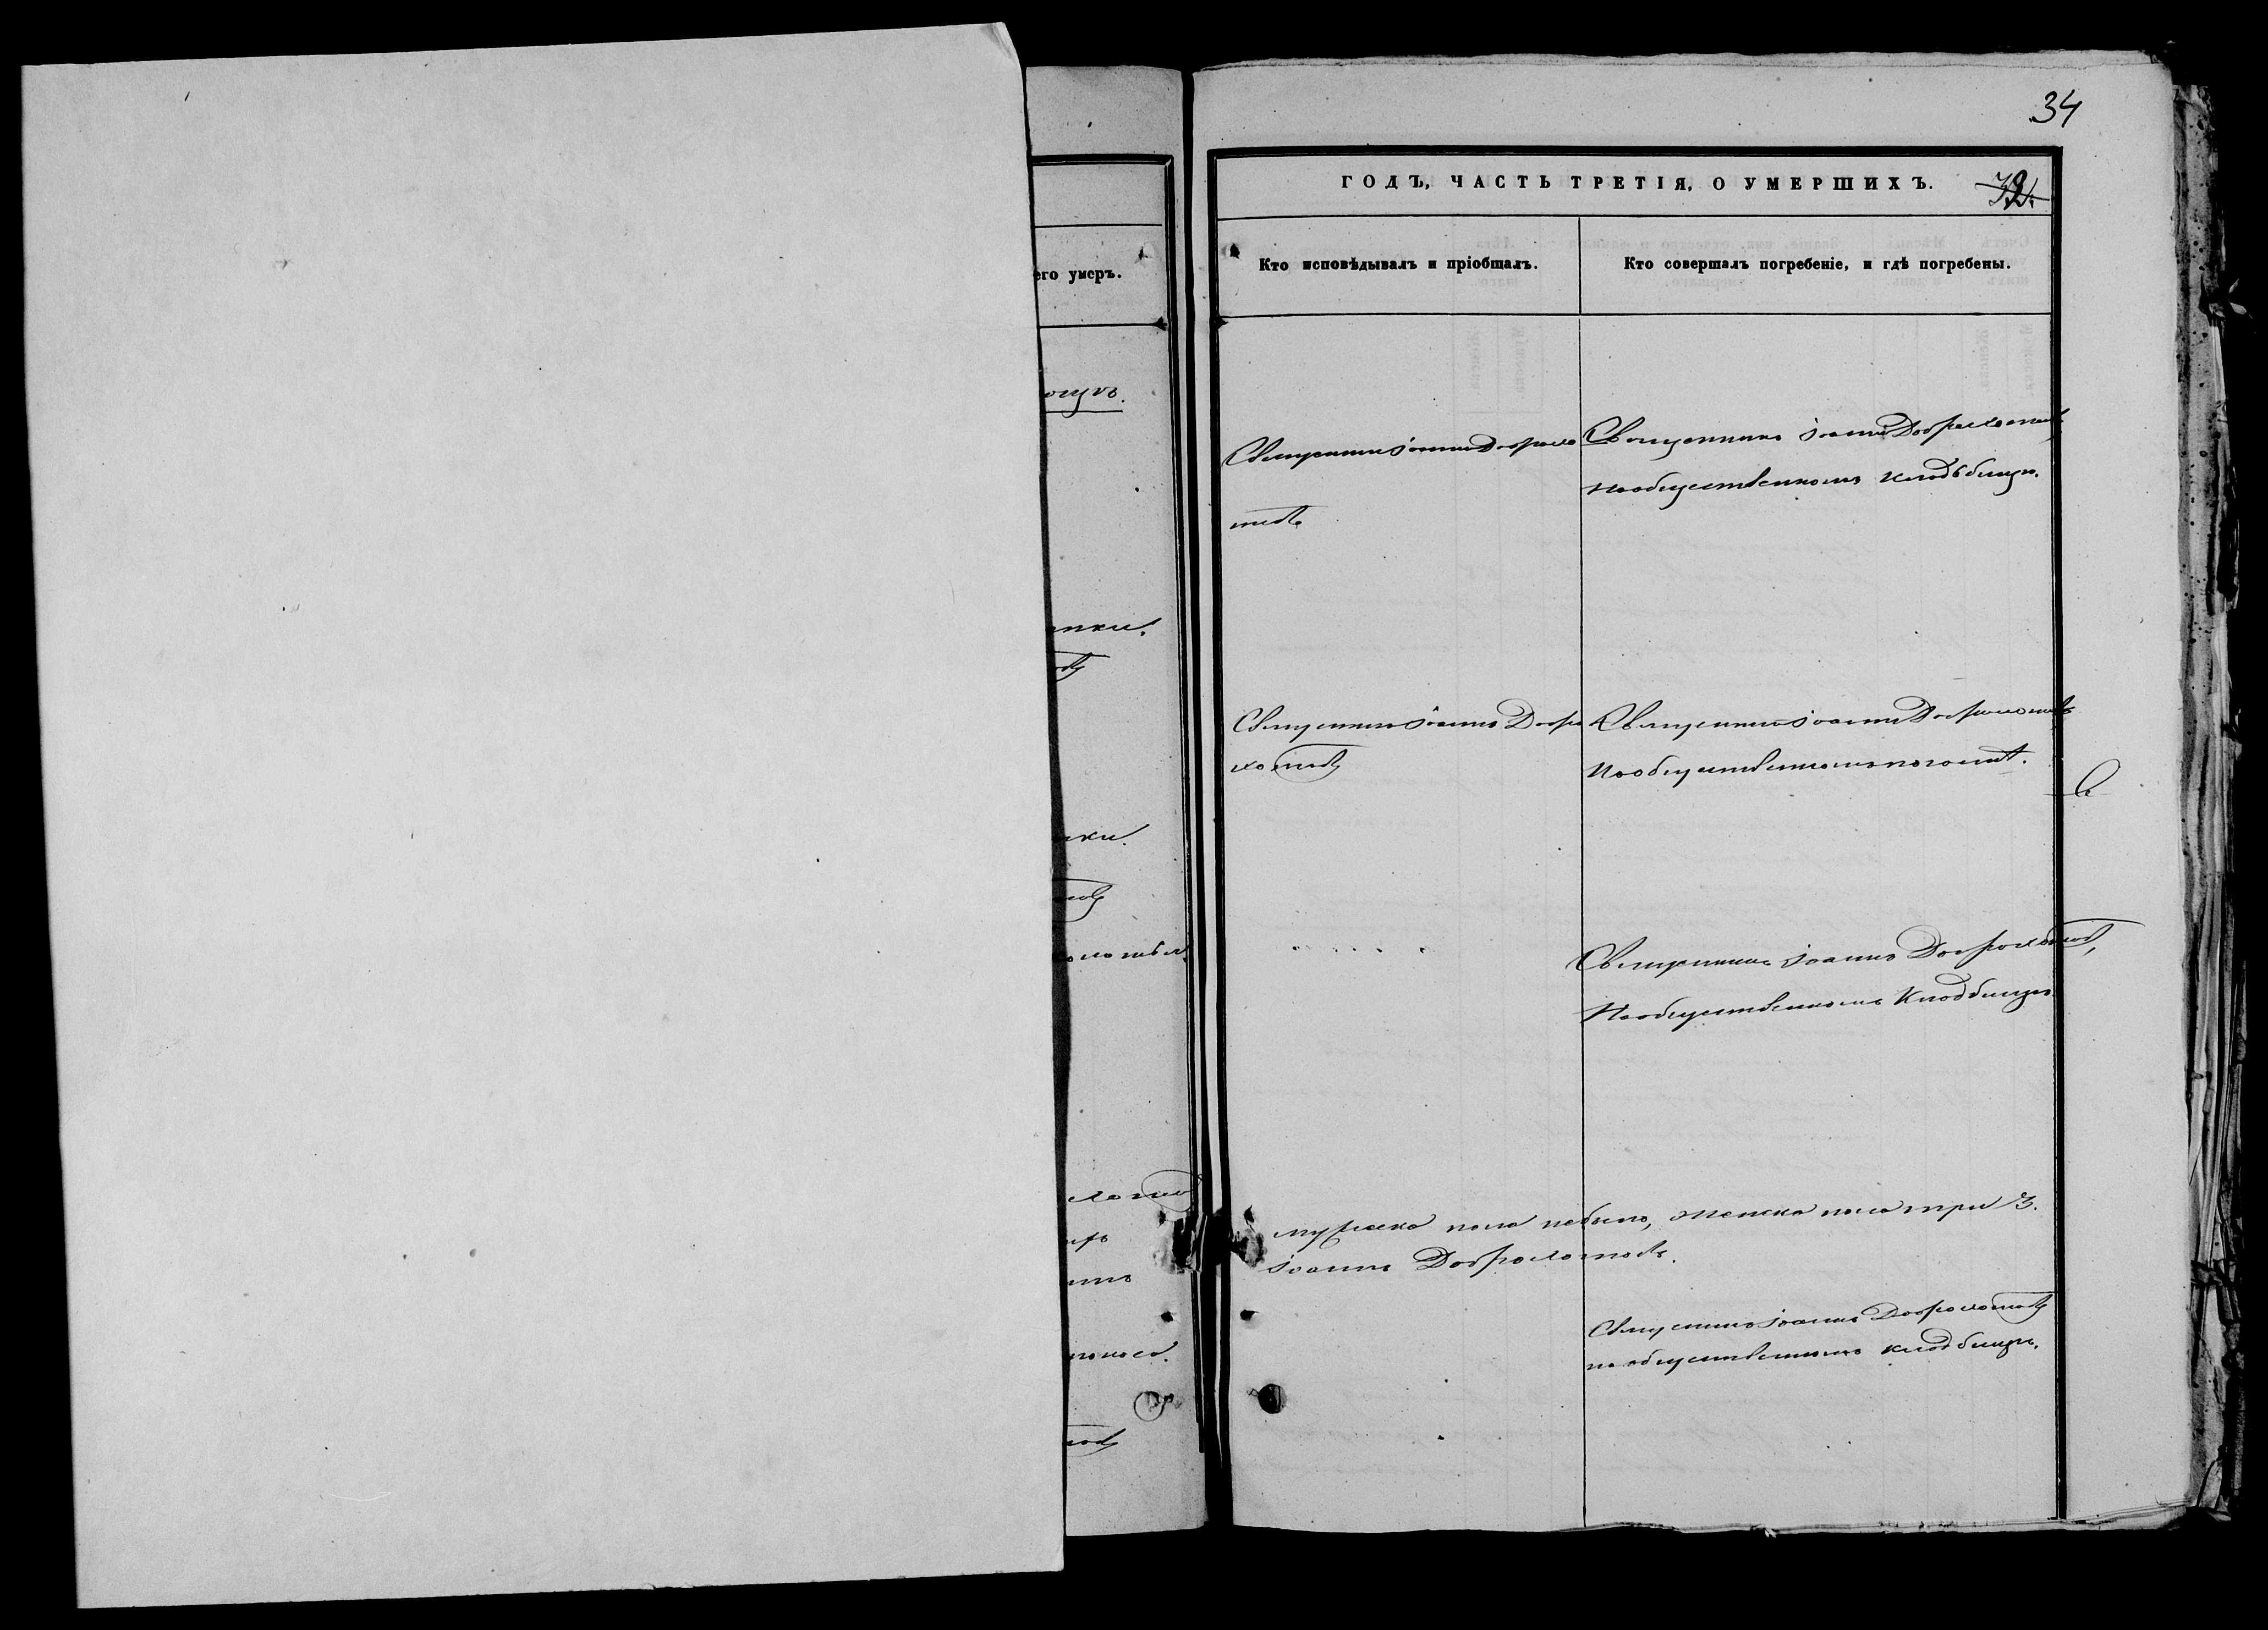 34
ГОДЪ, ЧАСТЬ ТРЕТІЯ, О УМЕРШИХЪ.
его умеръ.
Кто исповѣдывалъ и пріобщалъ.
Кто совершалъ погребеніе, и гдѣ погребены.
Священникъ Іоаннъ Доброхо
товъ
Священникъ Іоаннъ Доброхотовъ,
на общественномъ кладбищѣ.
Священникъ Іоаннъ Добро
хотовъ
Священникъ Іоаннъ Доброхотовъ
На общественномъ погостѣ.
Священникъ Іоаннъ Доброхотовъ,
На общественномъ Кладбищѣ.
мужеска пола небыло, женска пола три 3.
Іоаннъ Доброхотовъ.
Священникъ Іоаннъ Доброхотовъ
на общественномъ кладбищѣ.